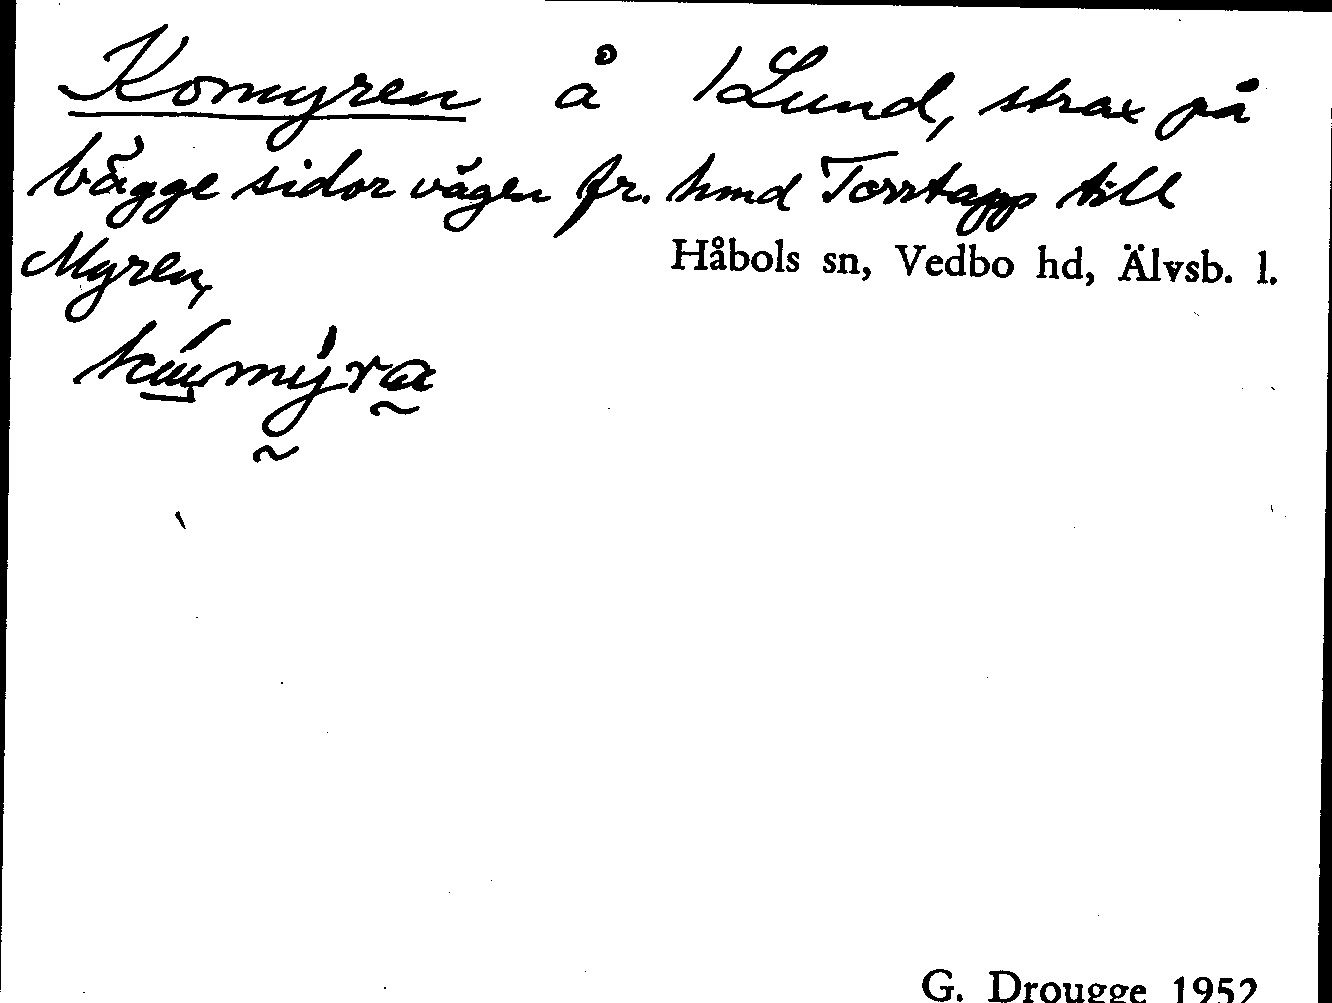 Komyren å 1Lund, strax på
bägge sidor vägen fr. hmd Torrtapp till
Myren,
Håbols sn, Vedbo hd, Älvsb. l.
G. Drougge 1952